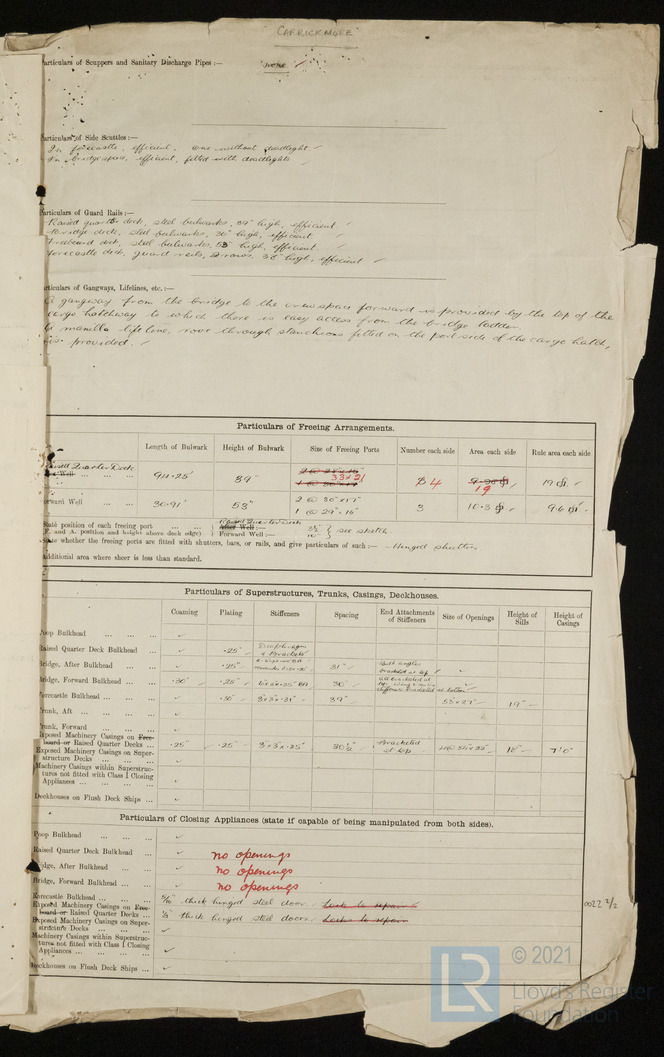 CARRICKMORE
articulars of Scuppers and Sanitary Discharge Pipes :— none ✓
articulars of Side Scuttles :—
In forecastle, efficient, one without deadlight ✓
In bridge space, efficient, fitted with deadlights ✓
articulars of Guard Rails :—
Raised quarter deck, steel bulwarks, 39" high, efficient ✓
Bridge deck, steel bulwarks, 36" high, efficient ✓
Freeboard deck, steel bulwarks, 53" high, efficient ✓
Forecastle deck, guard rails, 2 rows, 38" high, efficient ✓
rticulars of Gangways, Lifelines, etc. :—
A gangway from the bridge to the crewspace forward is provided by the top of the
cargo hatchway to which there is easy access from the bridge ladder.
manilla lifeline, rove through stanchions fitted on the port side of the cargo hatch,
is provided. ✓
Particulars of Freeing Arrangements.
Length of Bulwark Height of Bulwark Size of Freeing Ports Number each side Area each side Rule area each side
Raised Quarter Deck
Well ... ... ... 94.25' 39" 33×21 4 19 19 ✓
orward Well ... ... 30.91' 53" 2 @ 30"×17" 3 10.3 ✓ 9.6 ✓
1 @ 29" × 16"
State position of each freeing port ... ... Raised Quarter Deck After Well :—
(F. and A. position and height above deck edge) Forward Well :— see sketch
State whether the freeing ports are fitted with shutters, bars, or rails, and give particulars of such :— Hinged shutters
Additional area where sheer is less than standard.
Particulars of Superstructures, Trunks, Casings, Deckhouses.
Coaming Plating Stiffeners Spacing End Attachments of Stiffeners Size of Openings Height of Sills Height of Casings
Poop Bulkhead ... ... ... ✓
Raised Quarter Deck Bulkhead ... ✓ .25" Diaphragms & Brackets
Bridge, After Bulkhead ... ... ✓ .25" 31" ✓
Bridge, Forward Bulkhead ... ... .30" .25" 30"
Forecastle Bulkhead ... ... ... ✓ .30" 3×3×.31" 39" 53×27" 19"
Trunk, Aft ... ... ... ✓
Trunk, Forward ... ... ... ✓
Exposed Machinery Casings on Free-
board or Raised Quarter Decks ... .25" .25" 3×3×.25" 30½" Bracketed at top 18" 7'6"
Exposed Machinery Casings on Super-
structure Decks ... ... ... ✓
Machinery Casings within Superstruc-
tures not fitted with Class I Closing
Appliances ... ... ... ✓
Deckhouses on Flush Deck Ships ... ✓
Particulars of Closing Appliances (state if capable of being manipulated from both sides).
Poop Bulkhead ... ... ... ✓
Raised Quarter Deck Bulkhead ... ✓ no openings
Bridge, After Bulkhead ... ... ✓ no openings
Bridge, Forward Bulkhead ... ... ✓ no openings
Forecastle Bulkhead ... ... ... 5/16" thick hinged steel door. Lock to repair
Exposed Machinery Casings on Free-
board or Raised Quarter Decks ... thick hinged steel doors. Locks to repair
Exposed Machinery Casings on Super-
structure Decks ... ... ... ✓
Machinery Casings within Superstruc-
tures not fitted with Class I Closing
Appliances ... ... ... ✓
Deckhouses on Flush Deck Ships ... ✓
0022 2/2
LR © 2021
Lloyd's Register
Foundation